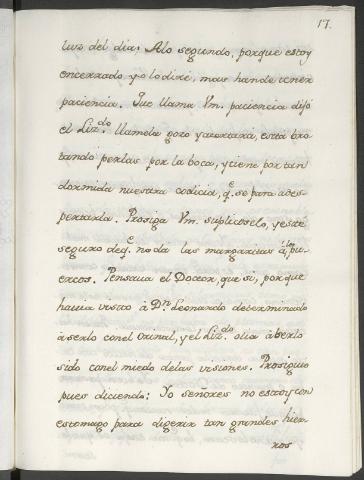 17.
luz del dia: Alo segundo, porque estoy
encerrado yo lo diré, mas hande tener
paciencia. Que llama Vm. paciencia dijo
el Liz.do llamela gozo y acertará, está bro
tando perlas por la boca, y tiene por tan
dormida nuestra codicia, q.e se para a des-
pertarla. Prosiga Vm. suplicoselo, y esté
seguro deq.e no da las margaritas á los pu-
ercos. Pensava el Doctor, que si, porque
havia visto à D.n Leonardo determinado
à serlo con el Orinal, y el Liz.do olia à berlo
sido con el miedo de las visiones. Prosiguio
pues diciendo: Yo señores no estoy con
estomago para digerir tan grandes hier
ros